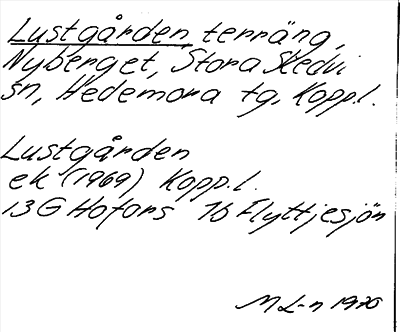 Lustgården, terräng,
Nyberget, Stora Skedvi
sn, Hedemora tg, Kopp.l.
Lustgården
ek (1969) Kopp.l.
13G Hofors 1b Flyttjesjön
M L-n 1970